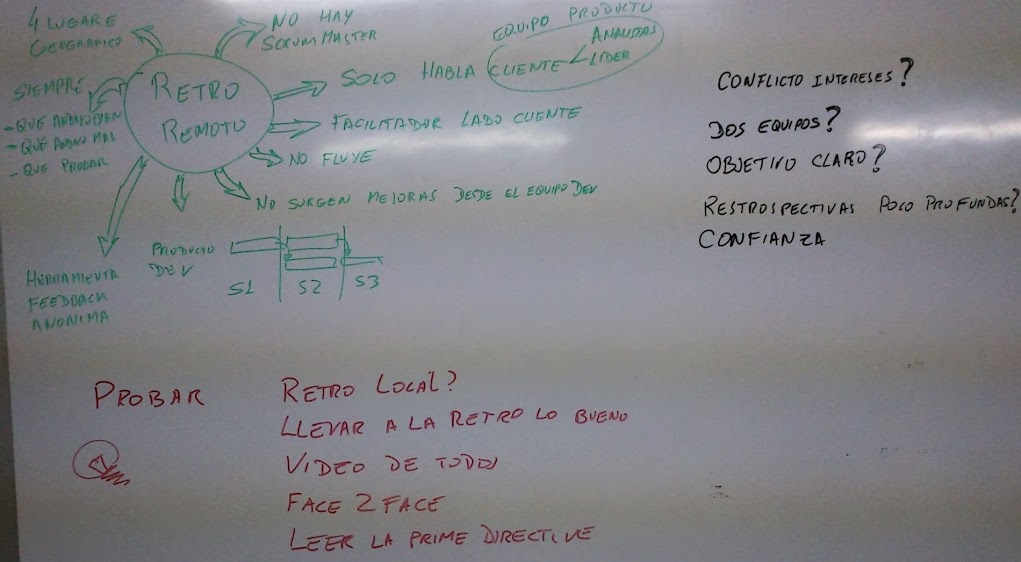 4 LUGARE
GEOGRAFICO
NO HAY
SCRUM MASTER
EQUIPO PRODUCTO
ANALISTAS
LIDER
SOLO HABLA CLIENTE
SIEMPRE
- QUE ANDUVO BIEN
- QUE ANDUVO MAL
- QUE PROBAR
RETRO
REMOTO
FACILITADOR LADO CLIENTE
NO FLUYE
NO SURGEN MEJORAS DESDE EL EQUIPO DEV
PRODUCTO
DEV
S1 S2 S3
HERRAMIENTA
FEEDBACK
ANONIMA
CONFLICTO INTERESES?
DOS EQUIPOS?
OBJETIVO CLARO?
RESTROSPECTIVAS POCO PROFUNDAS?
CONFIANZA
PROBAR
RETRO LOCAL?
LLEVAR A LA RETRO LO BUENO
VIDEO DE TODOS
FACE 2 FACE
LEER LA PRIME DIRECTIVE